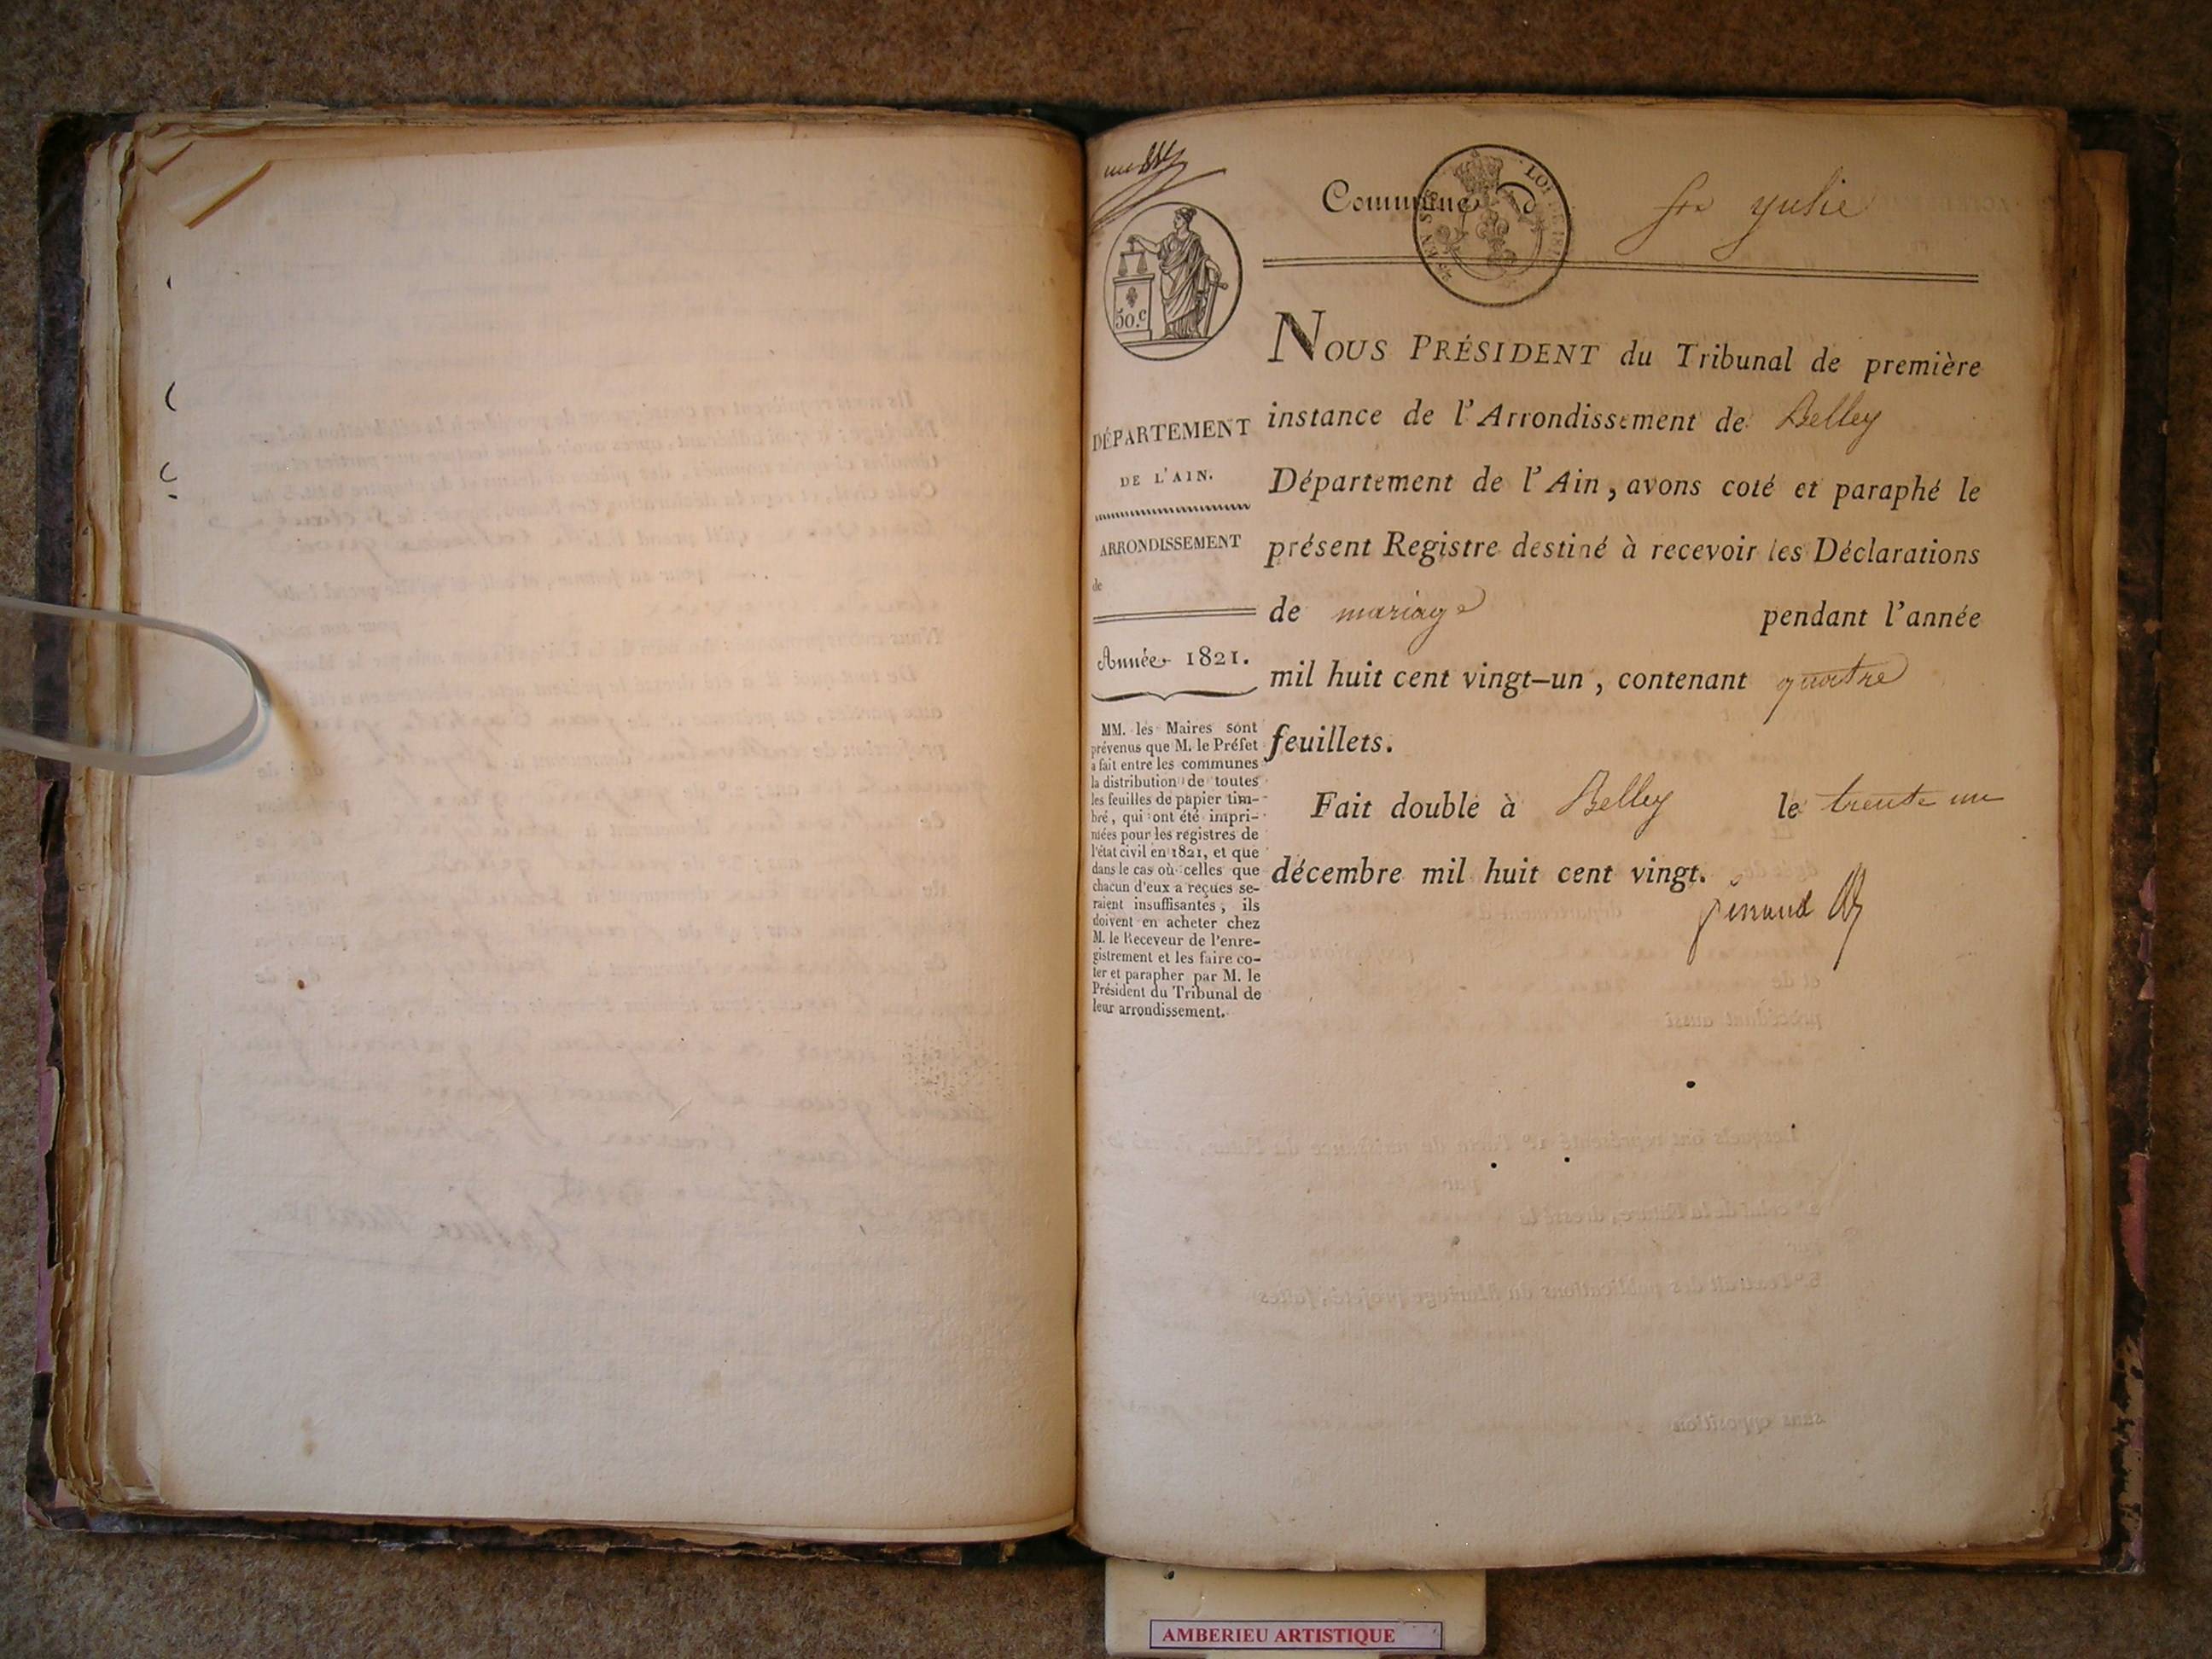 Commune d ste yulie
50.c
DÉPARTEMENT
DE L'AIN.
ARRONDISSEMENT
de
Année 1821.
MM. les Maires sont
prévenus que M. le Préfet
a fait entre les communes
la distribution de toutes
les feuilles de papier tim-
bré, qui ont été impri-
mées pour les registres de
l'état civil en 1821, et que
dans le cas où celles que
chacun d'eux a reçues se-
raient insuffisantes, ils
doivent en acheter chez
M. le Receveur de l'enre-
gistrement et les faire co-
ter et parapher par M. le
Président du Tribunal de
leur arrondissement.
NOUS PRÉSIDENT du Tribunal de première
instance de l'Arrondissement de Belley
Département de l'Ain, avons coté et paraphé le
présent Registre destiné à recevoir les Déclarations
de mariage pendant l'année
mil huit cent vingt-un, contenant quatre
feuillets.
Fait double à Belley le trente un
décembre mil huit cent vingt.
AMBERIEU ARTISTIQUE